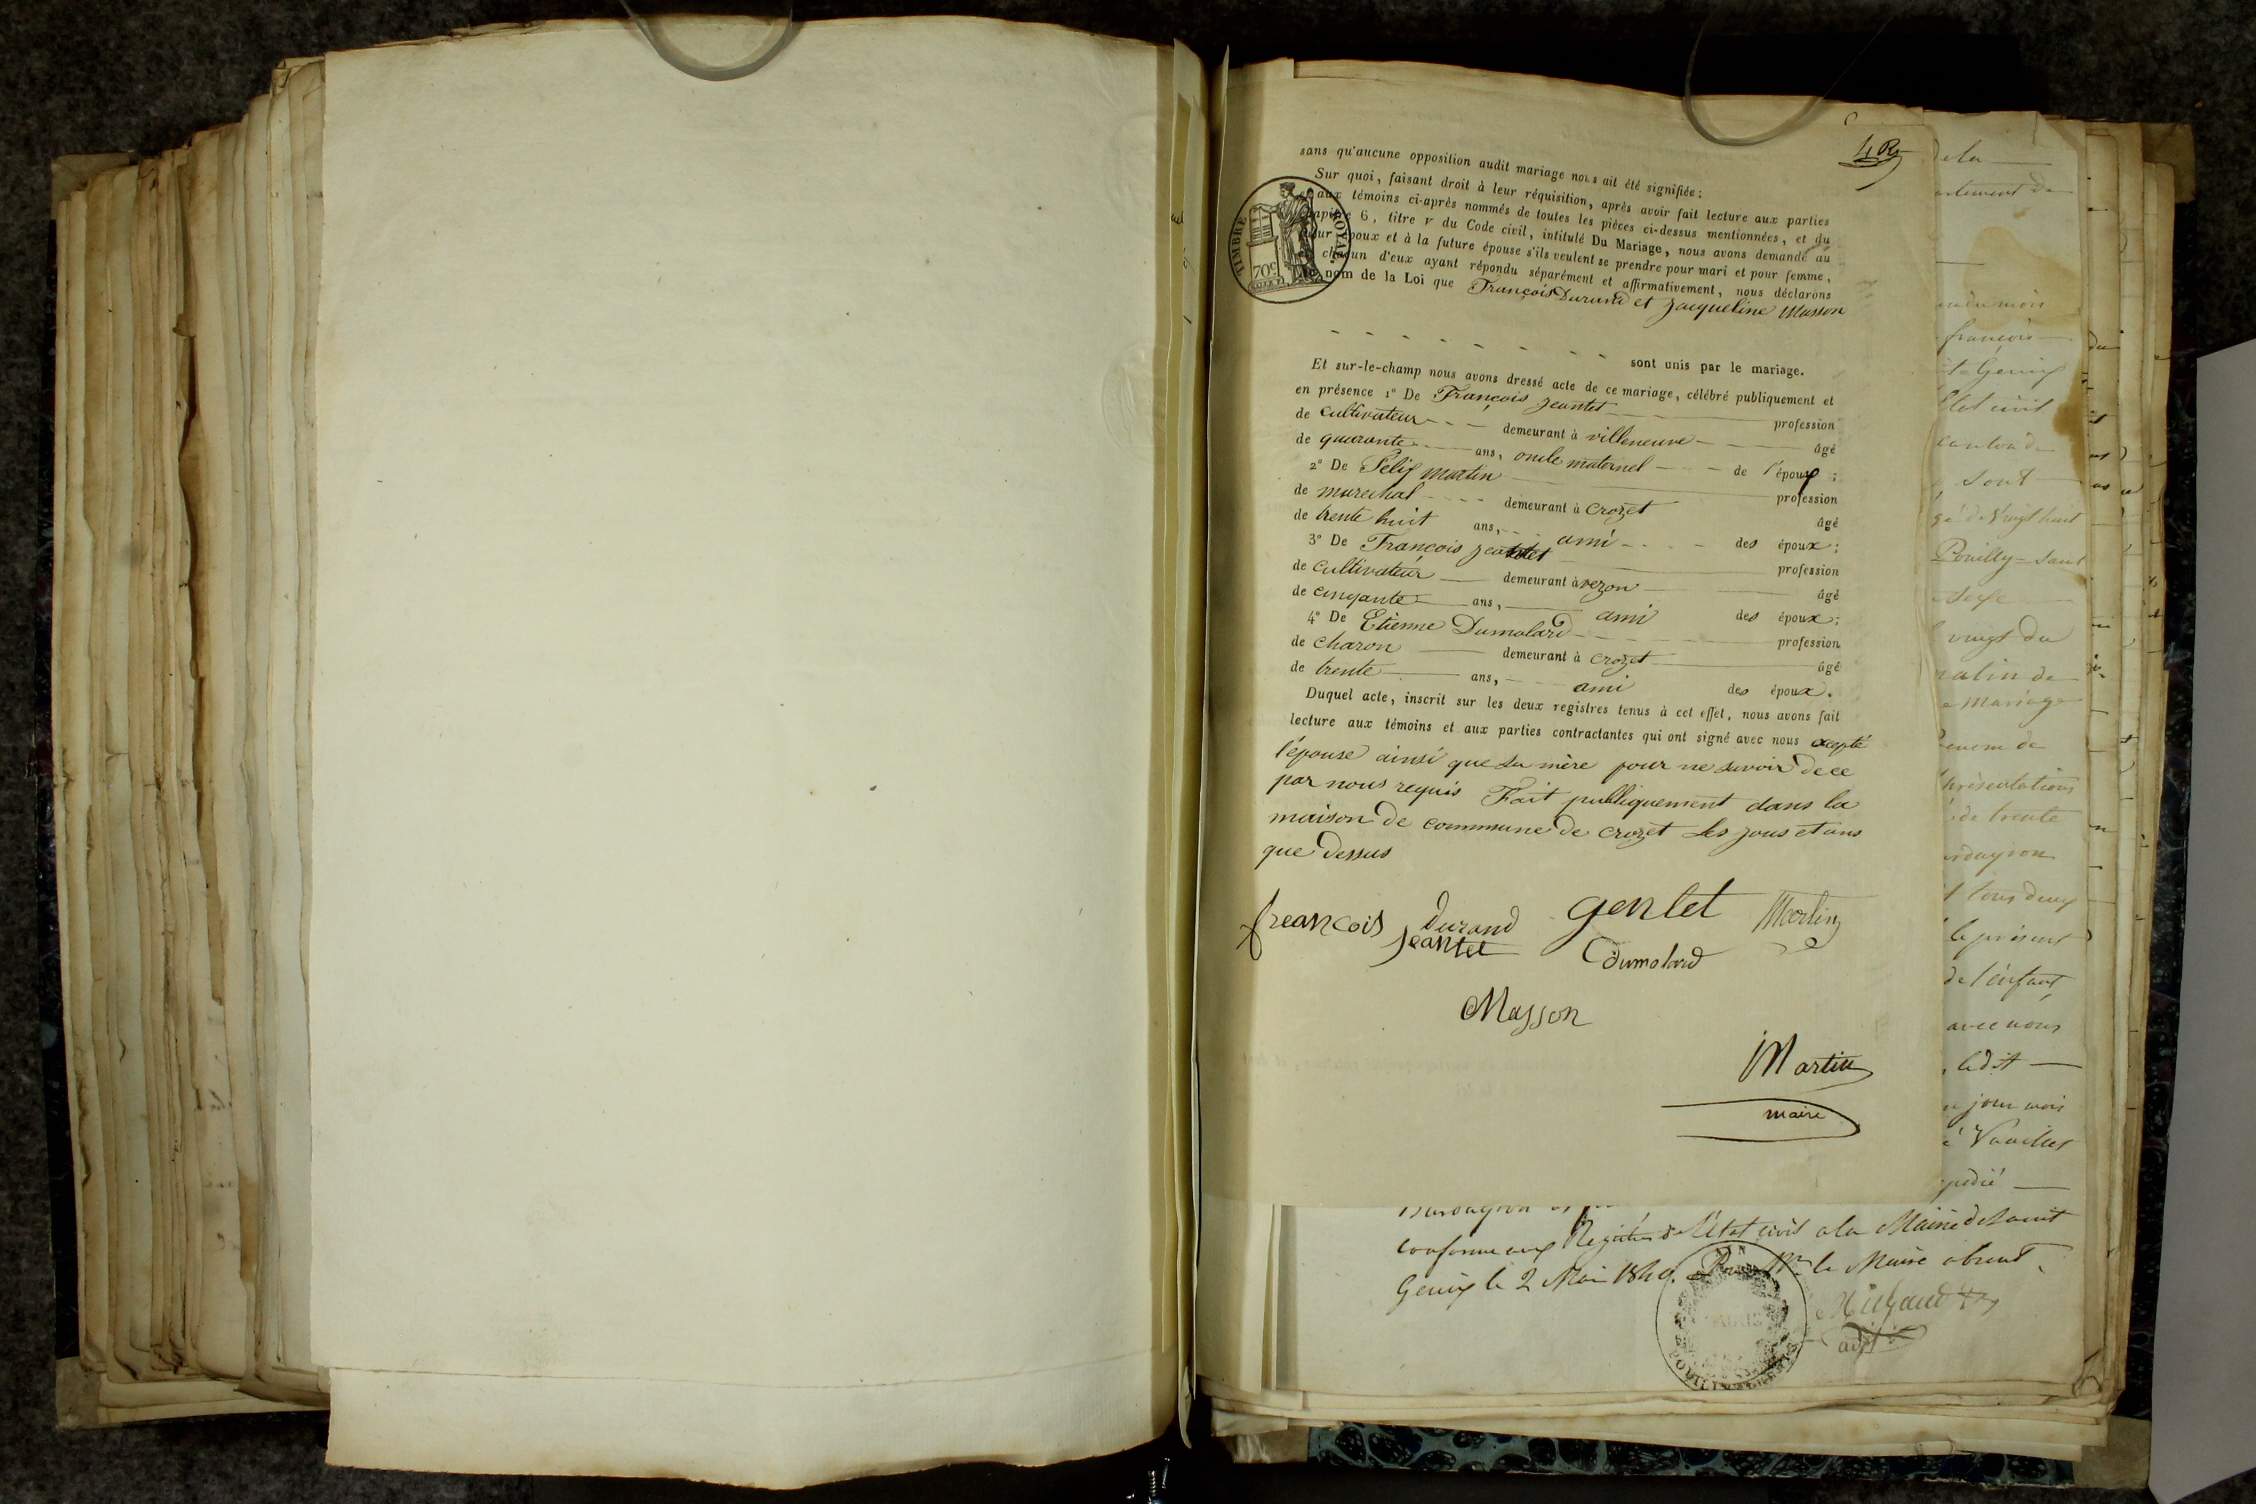 4 R
sans qu'aucune opposition audit mariage nous ait été signifiée ;
Sur quoi, faisant droit à leur réquisition, après avoir fait lecture aux parties
et aux témoins ci-après nommés de toutes les pièces ci-dessus mentionnées, et du
chapitre 6, titre v du Code civil, intitulé Du Mariage, nous avons demandé au
futur époux et à la future épouse s'ils veulent se prendre pour mari et pour femme,
et chacun d'eux ayant répondu séparément et affirmativement, nous déclarons
nom de la Loi que François Durand et Jacqueline Masson
TIMBRE ROYAL
70c
sont unis par le mariage.
Et sur-le-champ nous avons dressé acte de ce mariage, célébré publiquement et
en présence 1° De François Jeantet profession
de cultivateur demeurant à villeneuve âgé
de quarante ans, oncle maternel de l'époux ;
2° De Félix Martin profession
de marechal demeurant à crozet âgé
de trente huit ans, ami des époux ;
3° De François Jeantet profession
de cultivateur demeurant à vezon âgé
de cinqante ans, ami des époux ;
4° De Etienne Dumolard profession
de charon demeurant à crozet âgé
de trente ans, ami des époux.
Duquel acte, inscrit sur les deux registres tenus à cet effet, nous avons fait
lecture aux témoins et aux parties contractantes qui ont signé avec nous excepté
l'épouse ainsi que sa mère pour ne savoir de ce
par nous requis Fait publiquement dans la
maison de commune de crozet les jous et ans
que dessus
françois Durand gentet Martin
jeantet Dumolard
Masson
Martin
maire
de la
artement de
du mois
françois
Genix
Etat civil
canton de
sont
âgé de Vingt huit
Pouilly-Saint
vingt du
matin de
mariage
présentations
de trente
tous deux
le présent
de l'enfant
avec nous
ledit
jour mois
conforme aux Registres de l'état civil a la Mairie de Saint
Genix le 2 Mai 1840. Pour Mr le Maire absent.
AIN